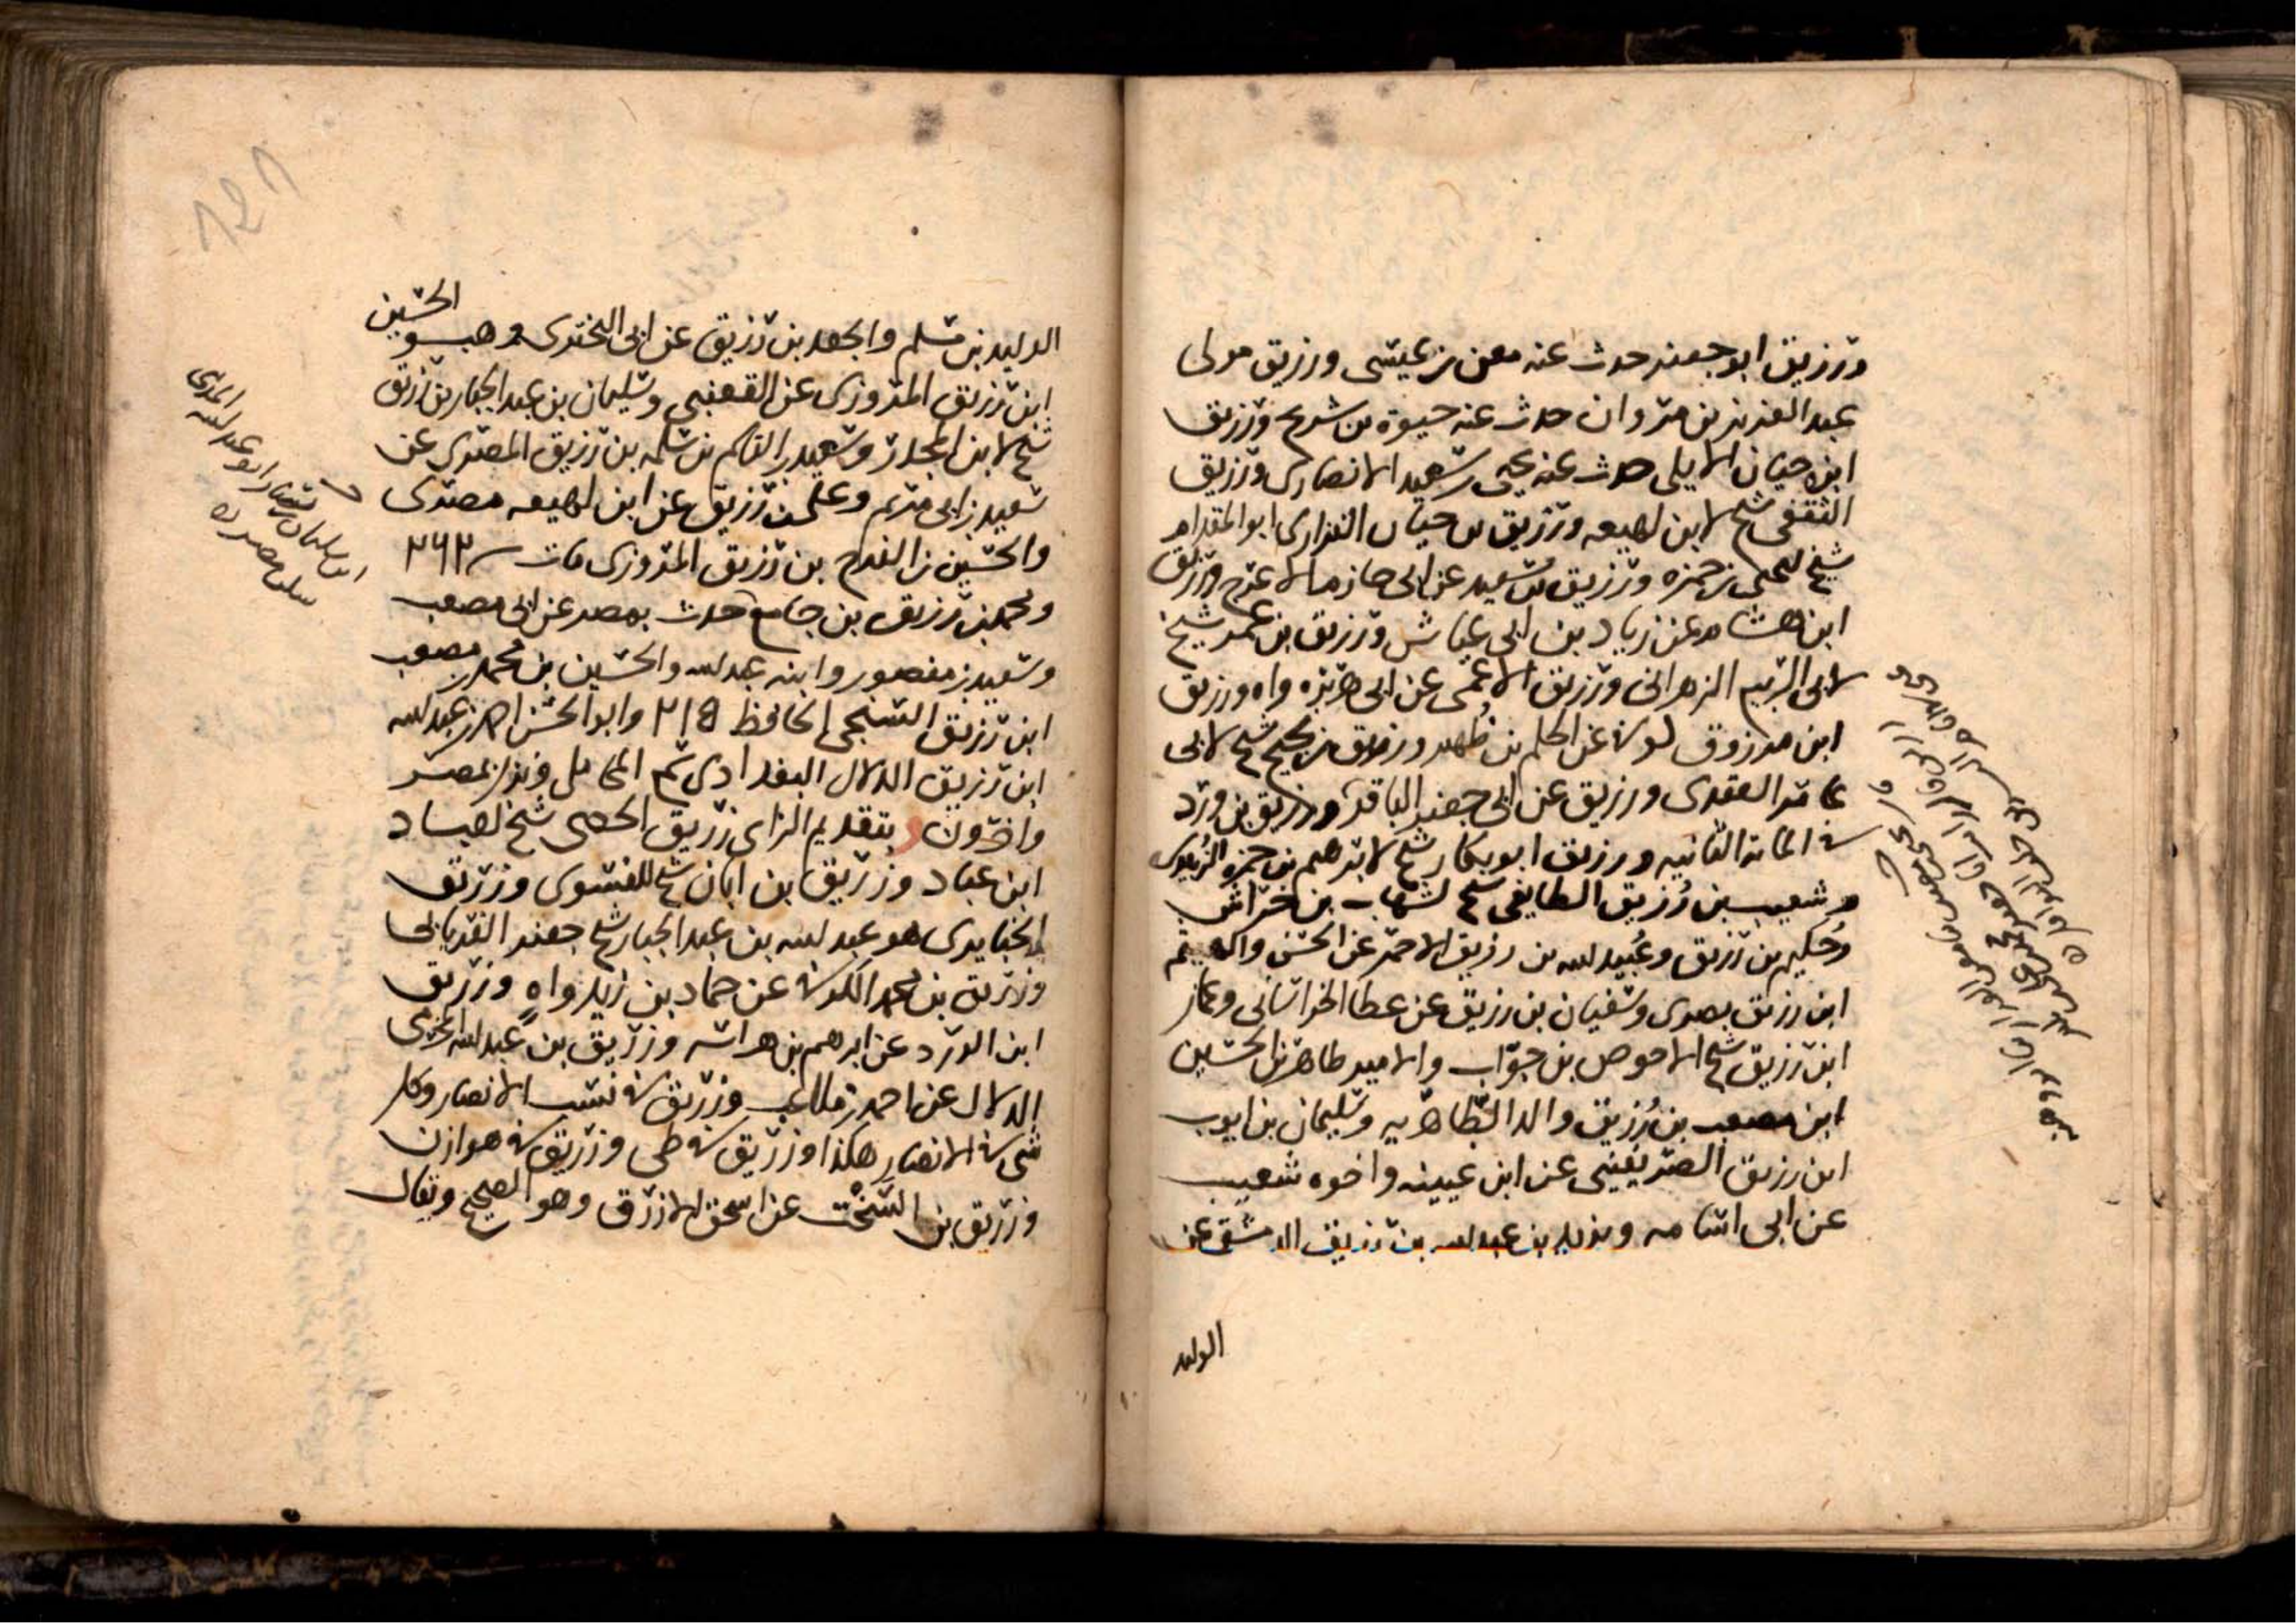 ورزيق ابو جعفر حدث عنه معن بن عيسى ورزيق مولى
عبد العزيز بن مروان حدث عنه حيوة بن شريح ورزيق
ابن حيان الايلي حدث عنه يحيى بن سعيد الانصاري ورزيق
الثقفي شيخ لابن لهيعه ورزيق بن حيان الفزاري ابو المقدام
شيخ ليحيى بن حمزه ورزيق بن سعيد عن ابي حازم الاعرج ورزيق
ابن هشام عن زياد بن ابي عياش ورزيق بن عمر شيخ
لابي الربيع الزهراني ورزيق الاعمى عن ابي هريره واه ورزيق
ابن مرزوق كوفي عن الحكم بن ظهير ورزيق بن نجيح شيخ لابي
عامر العقدي ورزيق عن ابي جعفر الباقر ورزيق بن ورد
في الماية الثانيه ورزيق ابو بكار شيخ لابرهيم بن حمزه الزبيري
وشعيب بن رُزيق الطايفي شيخ لشهاب بن خراش
وحُكيم بن رزيق وعُبيد الله بن رزيق الاحمر عن الحسن والهيثم
ابن رزيق بصري وسفيان بن رزيق عن عطا الخراساني وعمار
ابن رزيق شيخ الاحوص بن جوّاب والامير طاهر بن الحسين
ابن مصعب بن رُزيق والد الطاهريه وسليمان بن ايوب
ابن رزيق الصريفيني عن ابن عيينه واخوه شعيب
عن ابي اسامه ويزيد بن عبد الله بن رزيق الدمشقي عن
الوليد
الوليد بن مسلم والجعد بن رزيق عن ابي البختري وهب و الحسين
ابن رزيق المروزي عن القعنبي وسليمان بن عبد الجبار بن رزيق
شيخ لابن المجدر وسعيد بن القاسم بن سلمه بن رزيق المصري عن
سعيد بن ابي مريم وعلي بن رزيق عن ابن لهيعه مصري
والحسين بن الفرج بن رزيق المروزي مات سـ ٢٦٣
ومحمد بن رزيق بن جامع حدث بمصر عن ابي مصعب
وسعيد بن منصور وابنه عبد الله والحسين بن محمد بن مصعب
ابن رزيق السنجي الحافظ ٣١٥ وابو الحسن احمد بن عبد الله
ابن رزيق الدلال البغدادي سمع المحاملي ونزل مصر
واخرون وبتقديم الزاي زريق الحمصي شيخ لعباد
ابن عباد وزريق بن ابان شيخ للفسوي وزريق
الخبايري هو عبد الله بن عبد الجبار شيخ جعفر الفريابي
وزريق بن محمد الكوفي عن حماد بن زيد واهٍ وزريق
ابن الورد عن ابرهيم بن هراسه وزريق بن عبد الله المخرمي
الدلال عن احمد بن ملاعب وزريق في نسب الانصار وكل
شي في الانصار هكذا وزريق في طي وزريق في هوازن
وزريق بن السخت عن اسحق الازرق وهو الصحيح ويقال